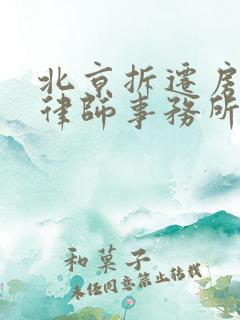 北京拆遷房
律師事務所
和菓子
未经同意禁止转载